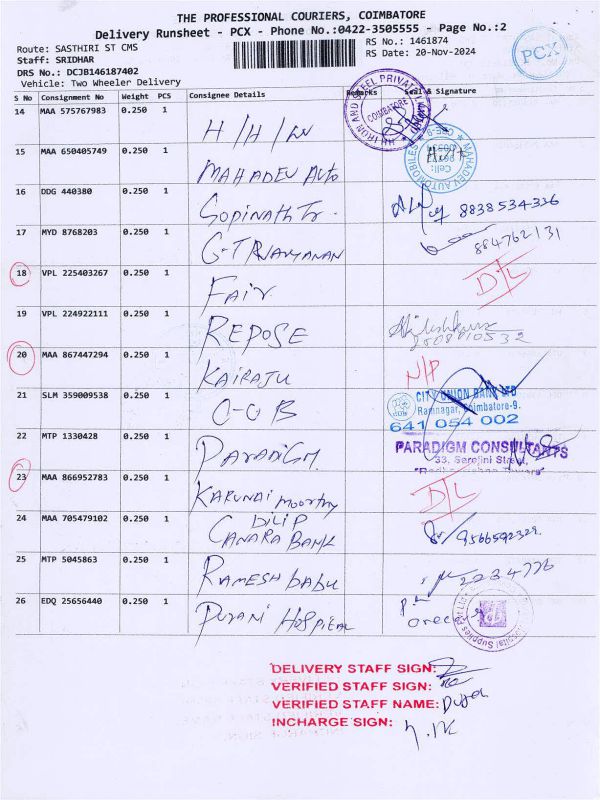 THE PROFESSIONAL COURIERS, COIMBATORE
Delivery Runsheet - PCX - Phone No.:0422-3505555 - Page No.:2
Route: SASTHIRI ST CMS
RS No.: 1461874
Staff: SRIDHAR
RS Date: 20-Nov-2024
DRS No.: DCJB146187402
Vehicle: Two Wheeler Delivery
PCX
S No Consignment No Weight PCS Consignee Details Remarks Seal & Signature
14 MAA 575767983 0.250 1
COIMBATORE
15 MAA 650405749 0.250 1 MAHADEV Auto
MAHADEV AUTOMOBILES
16 DDG 440380 0.250 1 Gopinath Tr. 8838534336
17 MYD 8768203 0.250 1 884762131
18 VPL 225403267 0.250 1 Fair D/L
19 VPL 224922111 0.250 1 REPOSE
20 MAA 867447294 0.250 1 KAIRAJU N/P
21 SLM 359009538 0.250 1
CITY UNION BANK LTD
Ramnagar, Coimbatore-9.
641 054 002
22 MTP 1330428 0.250 1 PARADIGM
PARADIGM CONSULTANTS
33, Sarojini Street,
23 MAA 866952783 0.250 1 KARUNAI moorthy D/L
24 MAA 705479102 0.250 1 DILIP
CANARA BANK 9566592329
25 MTP 5045863 0.250 1 RAMESH babu 2234776
26 EDQ 25656440 0.250 1 PURANI HOSPITAL
DELIVERY STAFF SIGN:
VERIFIED STAFF SIGN:
VERIFIED STAFF NAME:
INCHARGE SIGN: